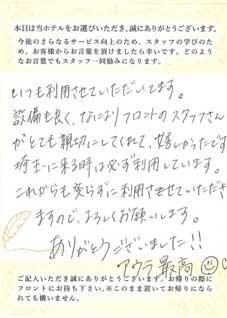 本日は当ホテルをお選びいただき、誠にありがとうございます。
今後のさらなるサービス向上のため、スタッフの学びのため、お客様からお言葉を頂けましたら幸いです。どのようなお言葉でもスタッフ一同励みになります。
いつも利用させていただいてます。
設備も良く、なによりフロントのスタッフさん
がとても親切にしてくれて、嬉しかったです
埼玉に来る時は必ず利用しています。
これからも変らずに利用させていただき
ますので、よろしくお願いします。
ありがとうございました!!
アウラ最高
ご記入いただき誠にありがとうございます。お帰りの際に
フロントにお持ち下さい。※このまま置いてお帰りになら
れても構いません。